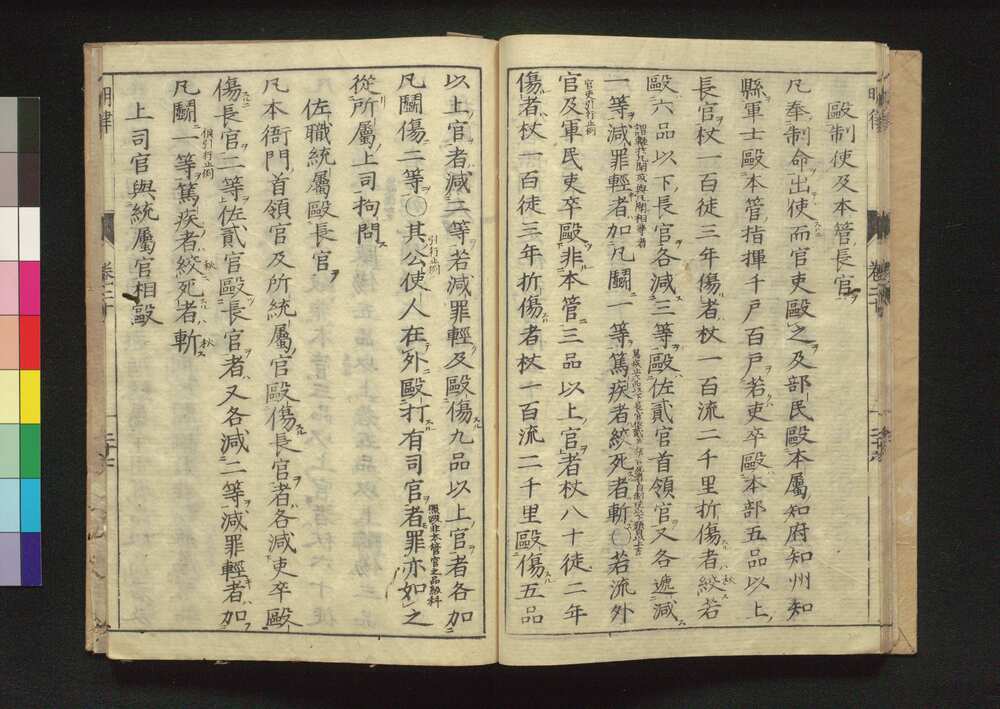 毆制使及本管長官
凡奉制命出使而官吏毆之及部民毆本屬知府知州知
縣軍士毆本管指揮千戸百戸若吏卒毆本部五品以上
長官杖一百徒三年傷者杖一百流二千里折傷者絞若
毆六品以下長官各減三等毆佐貳官首領官又各遞減
一等減罪輕者加凡鬬一等篤疾者絞死者斬〇若流外
官及軍民吏卒毆非本管三品以上官者杖八十徒二年
傷者杖一百徒三年折傷者杖一百流二千里毆傷五品
以上官者減二等若減罪輕及毆傷九品以上官者各加
凡鬬傷二等〇其公使人在外毆打有司官者罪亦如之
照毆非本管官之品級科
從所屬上司拘問
佐職統屬毆長官
凡本衙門首領官及所統屬官毆傷長官者各減吏卒毆
傷長官二等佐貳官毆長官者又各減二等減罪輕者加
凡鬬一等篤疾者絞死者斬
上司官與統屬官相毆
明律
卷二十